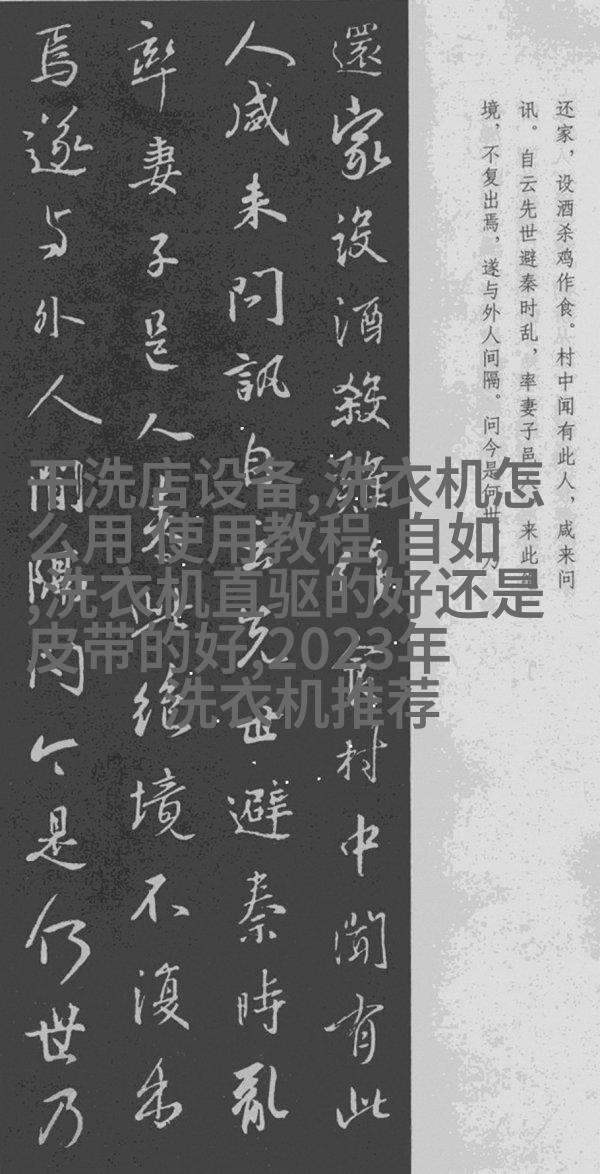 还家，设酒杀鸡作食。村中闻有此人，咸来问
讯。自云先世避秦时乱，率妻子邑来此绝
境，不复出焉，遂与外人间隔。问今是何世乃
還家設酒殺雞作食村中聞有此
人咸来問訊自云先世避秦時亂
率妻子邑人来此絕境不復出
焉遂与外人間隔問今是何世乃
干洗店设备,洗衣机怎
么用 使用教程,自如
,洗衣机直驱的好还是
皮带的好,2023年
洗衣机推荐